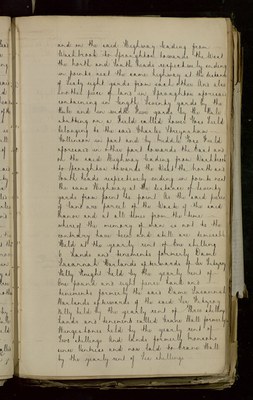 and on the said Highway leading from
Westbrook to Spreighton towards the West
the North and South Heads respectively ending
in points next the same highway at the distance
of sixty eight yards from each other And also
another piece of land in Spreighton aforesaid
containing in length seventy yards by the
Rule and in width Two yards by the Rule
abutting on a Field called Lower Gore Field
belonging to the said Charles
in part and by Middle Gore Field
aforesaid in other part towards the East and
on the said Highway leading from Westbrook
to Spreighton towards the West the North and
South heads respectively ending in points next
the same Highway at the distance of seventy
yards from point to point As the said pieces
of land are parcel of the Waste of the said
Manor and at all times from the time
whereof the memory of man is not to the
contrary have been and still are
Held at the yearly rent of two shillings
& Lands and tenements formerly Dame
Susannah Harlands afterwards of Sir Gregory
held by the yearly rent of
One pound and eight pence Lands and
tenements formerly the said Dame Susannah
Harlands afterwards of the said Sir Gregory
held by the yearly rent of Three shillings
Lands and tenements called formerly
held by the yearly rent of
Two shillings And Lands formerly
since and now held to
by the yearly rent of Six shillings